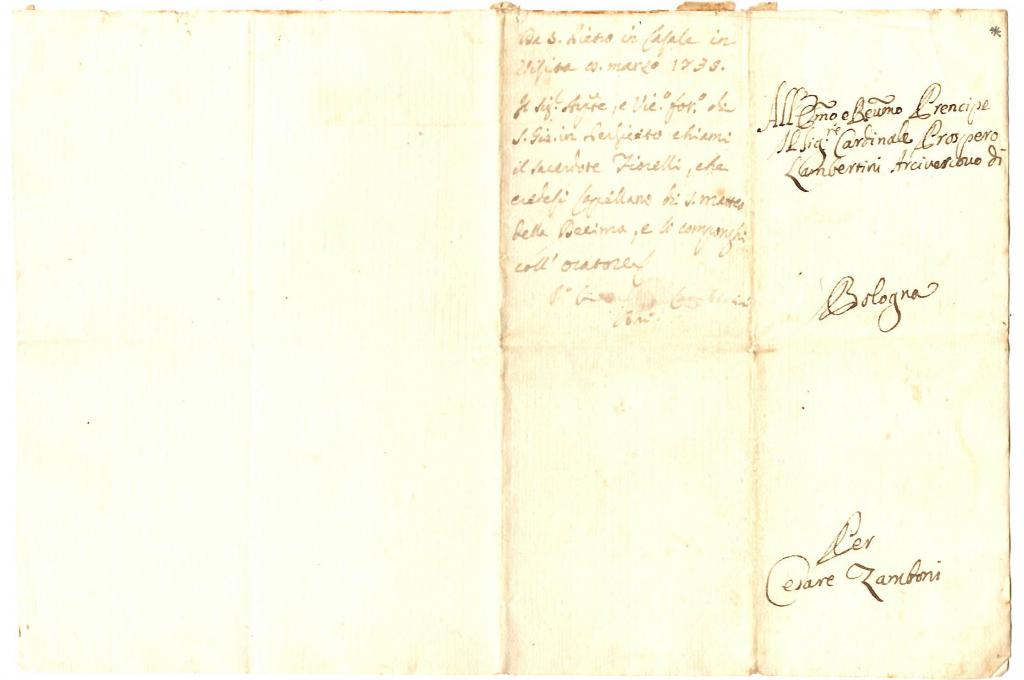 Da S. Pietro in Casale in
Visita marzo 1735.
Il Sig.r , e Vic.o for.o di
S. Gio. in Persiceto chiami
il sacerdote Fiorelli, che
credesi Capellano di S. Matteo
della Decima, e li componghi
coll' oratore
All' Emo e Reumo Prencipe
Il Sig.re Cardinale Prospero
Lambertini Arcivescovo di
Bologna
Per
Cesare Zamboni